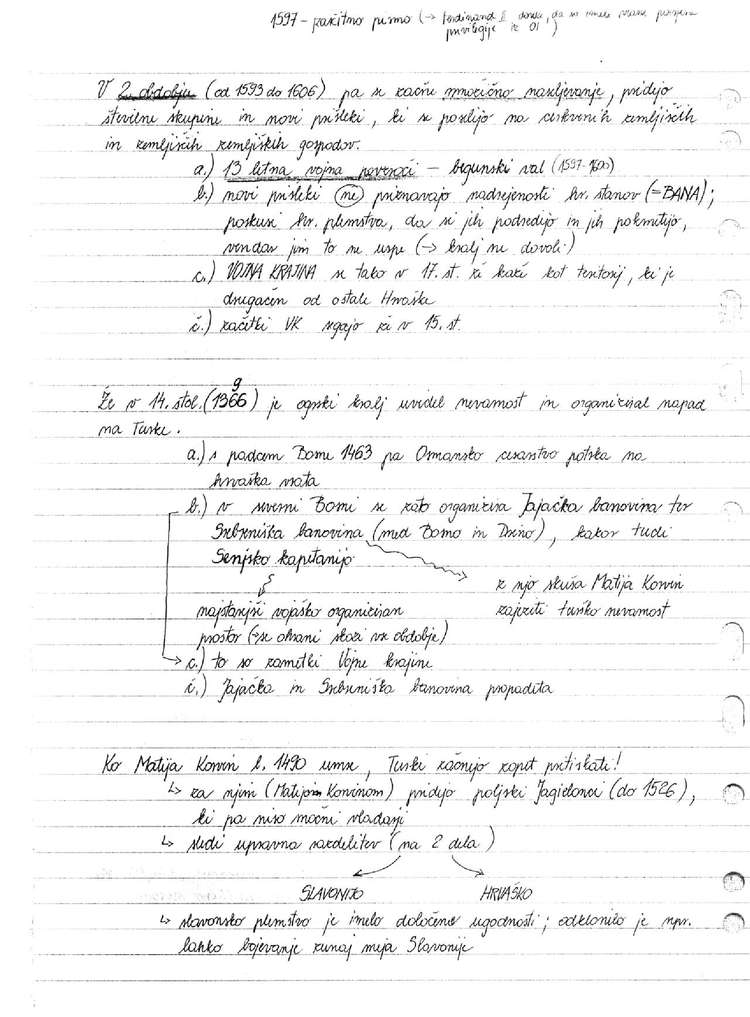 1597 - zaščitno pismo (→ Ferdinand II
privilegije iz 01 )
V 2. obdobju (od 1593 do 1606) pa se začne množično naseljevanje, pridejo
številne skupine in novi prišleki, ki se poselijo na cerkvenih zemljiščih
in zemljiščih zemljiških gospodov.
a.) 13 letna vojna povzroči - begunski val (1597-1600)
b.) novi prišleki (ne) priznavajo nadrejenosti hr. stanov (=BANA);
poskusi hr. plemstva, da si jih podredijo in jih pokmetijo,
vendar jim to ne uspe (→ kralj ne dovoli)
c.) VOJNA KRAJINA se tako v 17. st. že kaže kot teritorij, ki je
drugačen od ostale Hrvaške
č.) začetki VK segajo že v 15. st.
9
Že v 14. stol. (1366) je ogrski kralj uvidel nevarnost in organiziral napad
na Turke.
a.) s padcem Bosne 1463 pa Osmansko cesarstvo potrka na
hrvaška vrata
b.) v severni Bosni se zato organizira Jajačka banovina ter
Srebreniška banovina (med Bosno in Drino), kakor tudi
Senjsko kapetanijo
z njo skuša Matija Korvin
najstarejši vojaško organiziran
zajeziti turško nevarnost
prostor (→ se ohrani skozi vse obdobje)
→ c.) to so zametki Vojne krajine
č.) Jajačka in Srebreniška banovina propadeta
Ko Matija Korvin l. 1490 umre, Turki začnejo zopet pritiskati!
↳ za njim (Matijom Korvinom) pridejo poljski Jagielonci (do 1526),
ki pa niso močni vladarji
↳ sledi upravna razdelitev (na 2 dela)
SLAVONIJO HRVAŠKO
↳ slavonsko plemstvo je imelo določene ugodnosti; odklonilo je npr.
lahko bojevanje zunaj meja Slavonije